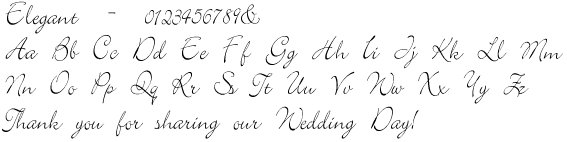 Elegant - 0123456789&
Aa Bb Cc Dd Ee Ff Gg Hh Ii Jj Kk Ll Mm
Nn Oo Pp Qq Rr Ss Tt Uu Vv Ww Xx Yy Zz
Thank you for sharing our Wedding Day!